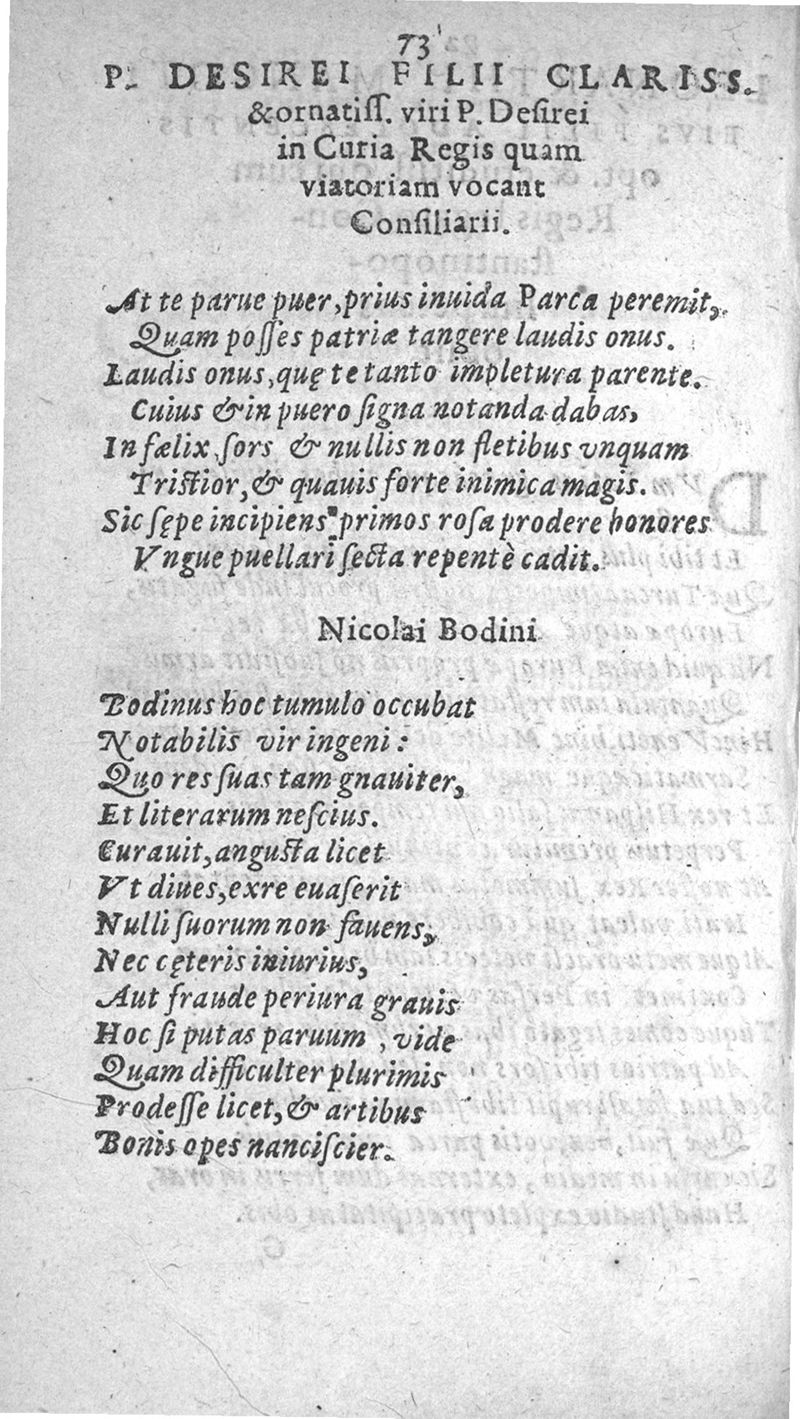 73
P. DESIREI FILII CLARISS.
&ornatiſſ. viri P. Deſirei
in Curia Regis quam
viatoriam vocant
Conſiliarii.
At te parue puer, prius inuida Parca peremit,
Quam poſſes patriæ tangere laudis onus.
Laudis onus, quę te tanto impletura parente.
Cuius & in puero ſigna notanda dabas,
Infælix ſors & nullis non fletibus vnquam
Triſtior, & quauis forte inimica magis.
Sic ſępe incipiens primos roſa prodere honores
Vngue puellari ſecta repentè cadit.
Nicolai Bodini
Bodinus hoc tumulo occubat
Notabilis vir ingeni:
Quo res ſuas tam gnauiter,
Et literarum neſcius.
Curauit, anguſta licet
Vt diues, exre euaſerit
Nulli ſuorum non fauens,
Nec cęteris iniurius,
Aut fraude periura grauis
Hoc ſi putas paruum, vide
Quam difficulter plurimis
Prodeſſe licet, & artibus
Bonis opes nanciſcier.